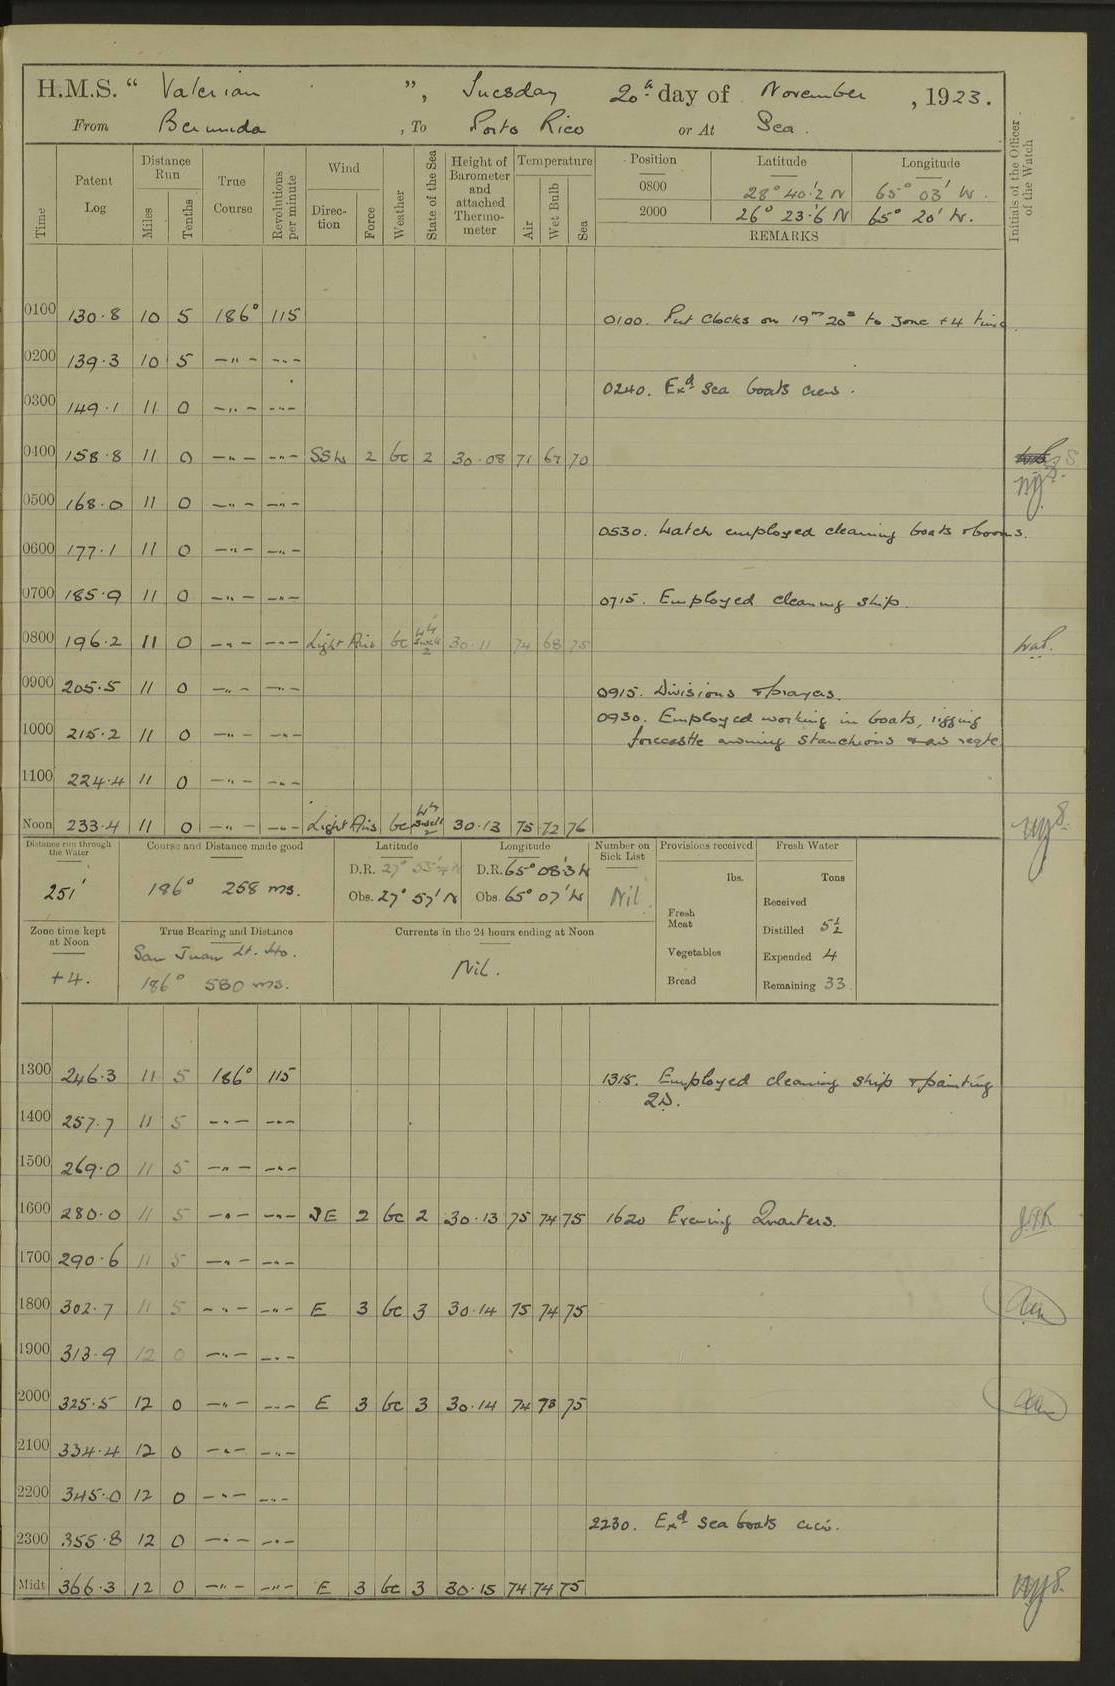 H.M.S. “ Valerian ”, Tuesday 20th day of November, 1923.
From Bermuda, To Porto Rico or At Sea.
Time
Patent Log
Distance Run
Miles
Tenths
True Course
Revolutions per minute
Wind
Direction
Force
Weather
State of the Sea
Height of Barometer and attached Thermometer
Temperature
Air
Wet Bulb
Sea
Position Latitude Longitude
0800 28° 40·2' N 65° 03' W.
2000 26° 23·6' N 65° 20' W.
REMARKS
Initials of the Officer of the Watch
0100 130·8 10 5 186° 115 0100. Put Clocks on 19m 20s to Zone +4 time.
0200 139·3 10 5 —"— —"—
0240. Exd Sea boats crews.
0300 149·1 11 0 —"— —"—
0400 158·8 11 0 —"— —"— SSW 2 bc 2 30·08 71 67 70
0500 168·0 11 0 —"— —"—
0530. Watch employed cleaning boats & booms.
0600 177·1 11 0 —"— —"—
0700 185·9 11 0 —"— —"— 0715. Employed cleaning ship.
0800 196·2 11 0 —"— —"— Light Airs bc Swell 2 30·11 74 68 75
0900 205·5 11 0 —"— —"— 0915. Divisions & prayers.
0930. Employed working in boats, rigging
1000 215·2 11 0 —"— —"— forecastle awning stanchions & as reqte
1100 224·4 11 0 —"— —"—
Noon 233·4 11 0 —"— —"— Light Airs bc Swell 2 30·13 75 72 76
Distance run through the Water
251'
Course and Distance made good
186° 258 ms.
Latitude
D.R. 27°
Obs. 27° 57' N
Longitude
D.R. 65° 08·3' W
Obs. 65° 07' W
Number on Sick List
Nil.
Provisions received
lbs.
Fresh Meat
Vegetables
Bread
Fresh Water
Tons
Received
Distilled 5½
Expended 4
Remaining 33
Zone time kept at Noon
+4.
True Bearing and Distance
San Juan Lt. Ho.
186° 580 ms.
Currents in the 24 hours ending at Noon
Nil.
1300 246·3 11 5 186° 115 1315. Employed cleaning ship & painting
2D.
1400 257·7 11 5 —"— —"—
1500 269·0 11 5 —"— —"—
1600 280·0 11 5 —"— —"— SE 2 bc 2 30·13 75 74 75 1620 Evening Quarters.
1700 290·6 11 5 —"— —"—
1800 302·7 11 5 —"— —"— E 3 bc 3 30·14 75 74 75
1900 313·9 12 0 —"— —"—
2000 325·5 12 0 —"— —"— E 3 bc 3 30·14 74 73 75
2100 334·4 12 0 —"— —"—
2200 345·0 12 0 —"— —"—
2230. Exd Sea boats crew.
2300 355·8 12 0 —"— —"—
Midt 366·3 12 0 —"— —"— E 3 bc 3 30·15 74 74 75